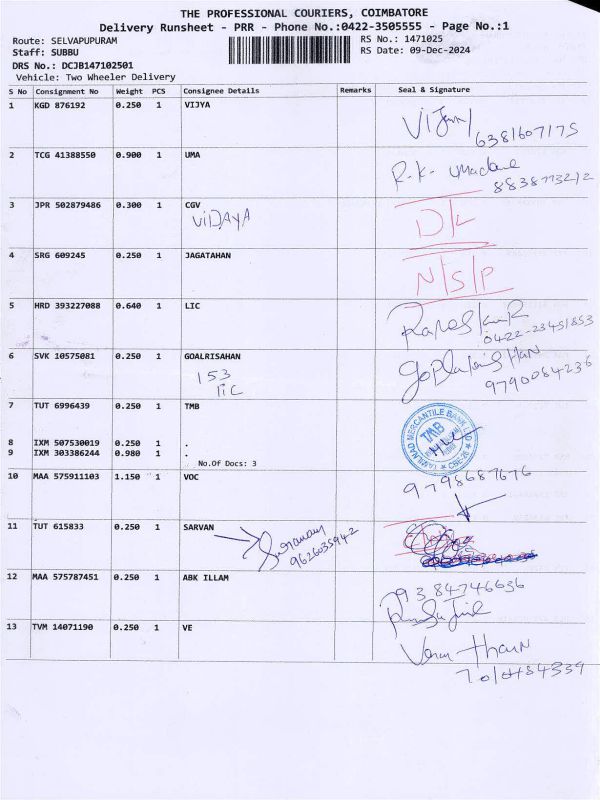 THE PROFESSIONAL COURIERS, COIMBATORE
Delivery Runsheet - PRR - Phone No.:0422-3505555 - Page No.:1
Route: SELVAPUPURAM RS No.: 1471025
Staff: SUBBU RS Date: 09-Dec-2024
DRS No.: DCJB147102501
Vehicle: Two Wheeler Delivery
S No Consignment No Weight PCS Consignee Details Remarks Seal & Signature
1 KGD 876192 0.250 1 VIJYA
6381607175
2 TCG 41388550 0.900 1 UMA R-K-
3 JPR 502879486 0.300 1 CGV D/L
VIDAYA
4 SRG 609245 0.250 1 JAGATAHAN N/S/P
5 HRD 393227088 0.640 1 LIC
0422-23451853
6 SVK 10575081 0.250 1 GOALRISAHAN
153
LIC
9790084236
7 TUT 6996439 0.250 1 TMB TAMILNAD MERCANTILE BANK LTD TMB CBE-26
8 IXM 507530019 0.250 1 .
9 IXM 303386244 0.980 1 .
No.Of Docs: 3
10 MAA 575911103 1.150 1 VOC 9798687676
11 TUT 615833 0.250 1 SARVAN
12 MAA 575787451 0.250 1 ABK ILLAM 9384746636
13 TVM 14071190 0.250 1 VE